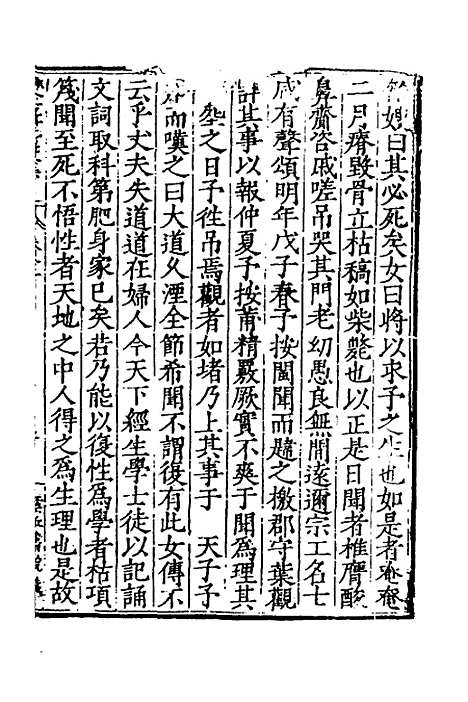 嫂曰其必死矣女曰將以求子之生也如是者奄奄
二月瘠毀骨立枯稿如柴斃也以正是日聞者椎膺酸
鼻齎咨戚嗟吊哭其門老幼愚良無閒遠邇宗工名士
咸有聲頌明年戊子春予按閩聞而韙之檄郡守葉觀
詳其事以報仲夏予按莆精覈厥實不爽于聞為理其
塋之日予徃吊焉觀者如堵乃上其事于 天子予
而嘆之曰大道乆湮全節希聞不謂復有此女傳不
云乎丈夫失道道在婦人今天下經生學士徒以記誦
文詞取科第肥身家已矣若乃能以復性為學者枯項
箋聞至死不悟性者天地之中人得之為生理也是故